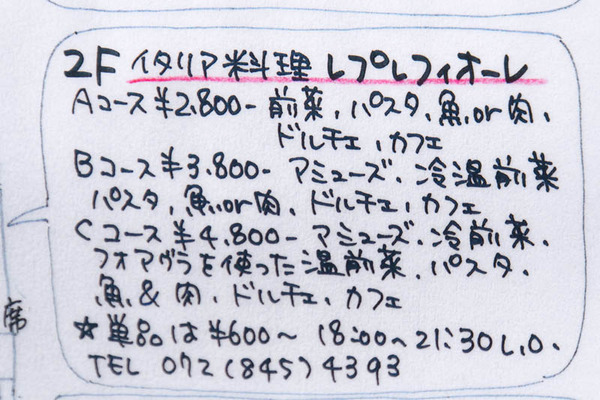 2F イタリア料理 レプレフィオーレ
Aコース ¥2.800- 前菜、パスタ、魚or肉、
ドルチェ、カフェ
Bコース ¥3.800- アミューズ、冷温前菜
パスタ、魚or肉、ドルチェ、カフェ
Cコース ¥4.800- アミューズ、冷前菜、
フォアグラを使った温前菜、パスタ、
魚&肉、ドルチェ、カフェ
席
☆単品は¥600〜 18:00〜21:30 L.O.
TEL 072(845)4393